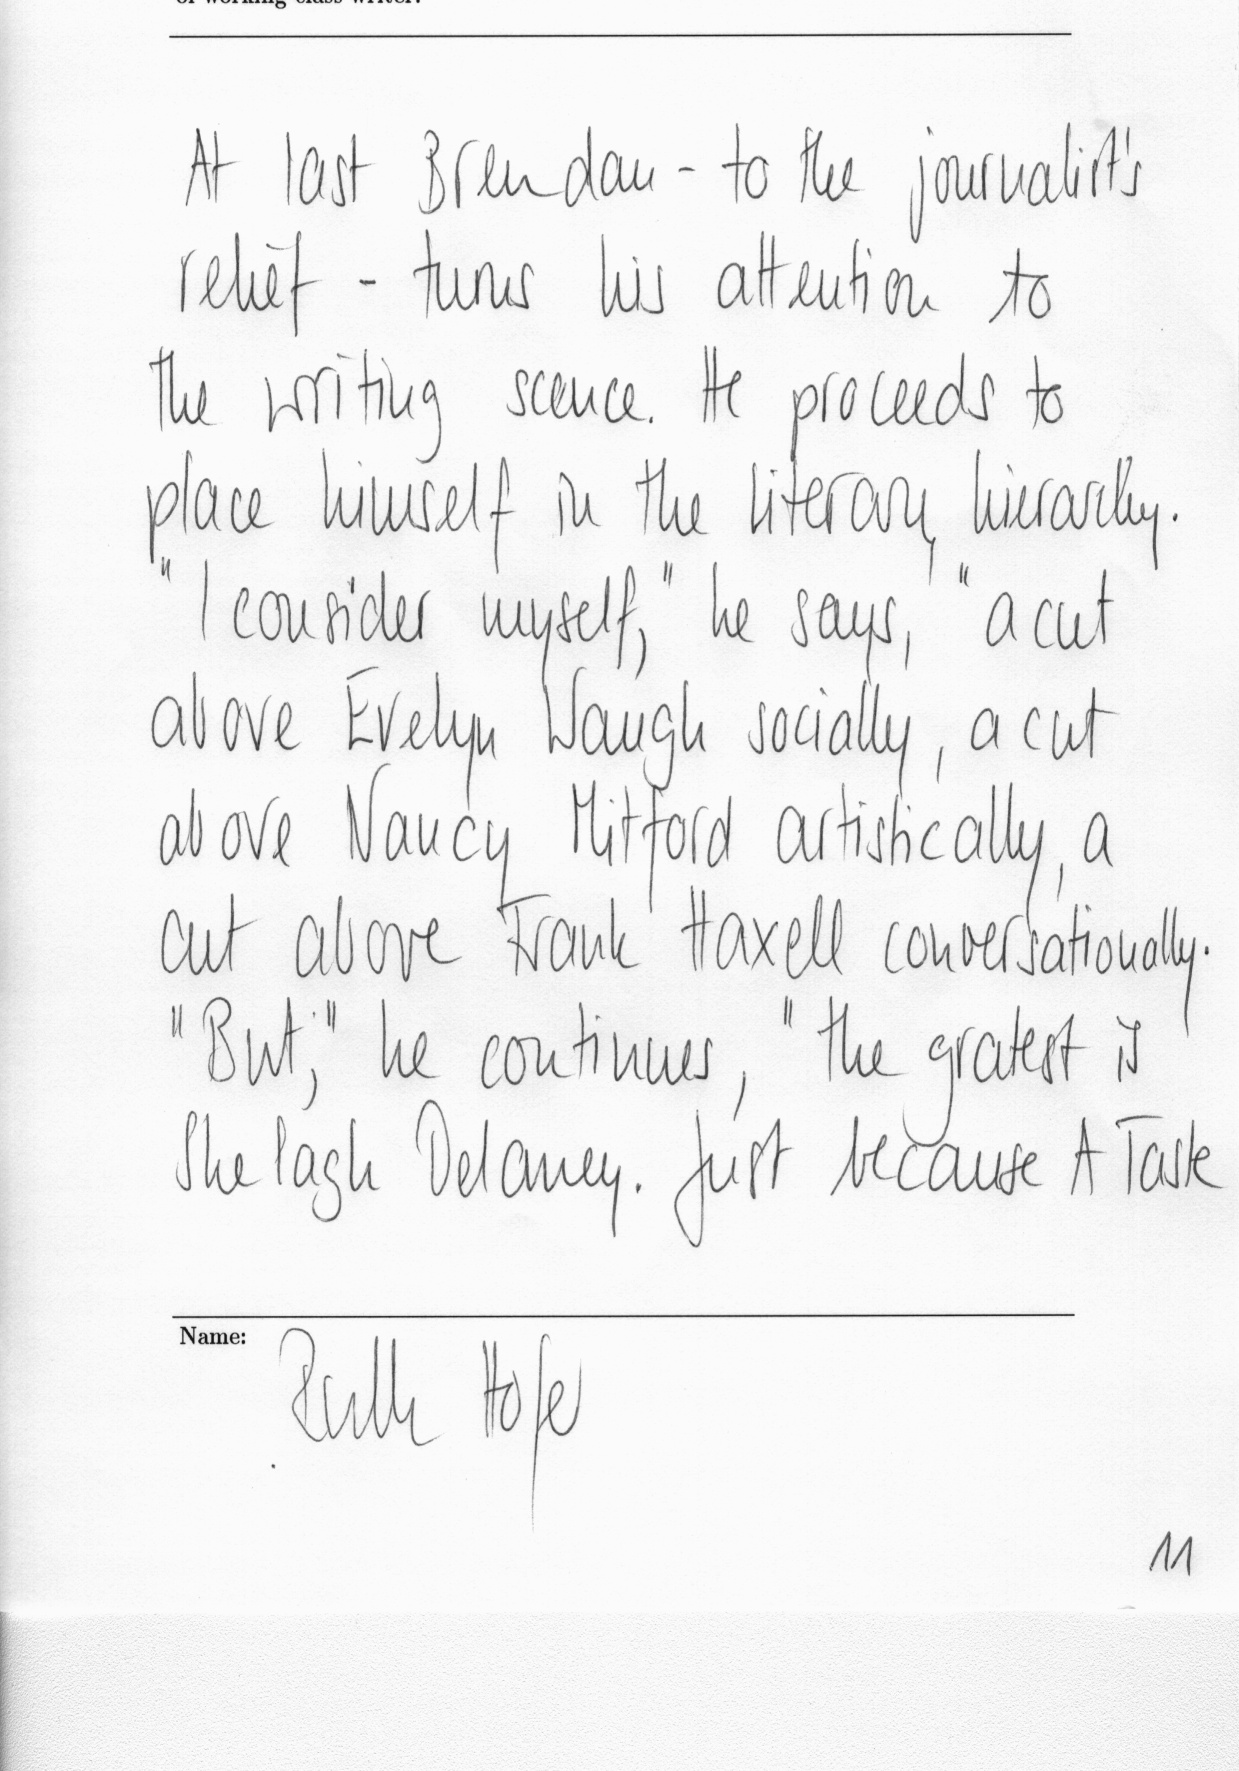 of working-class writer.
At last Brendan - to the journalist's
relief - turns his attention to
the writing scence. He proceeds to
place himself in the literary hierarchy.
"I consider myself," he says, "a cut
above Evelyn Waugh socially, a cut
above Nancy Mitford artistically, a
cut above Frank Haxell conversationally.
"But," he continues, "the gratest is
Shelagh Delaney. Just because A Taste
Name: Ruth Hofer
11